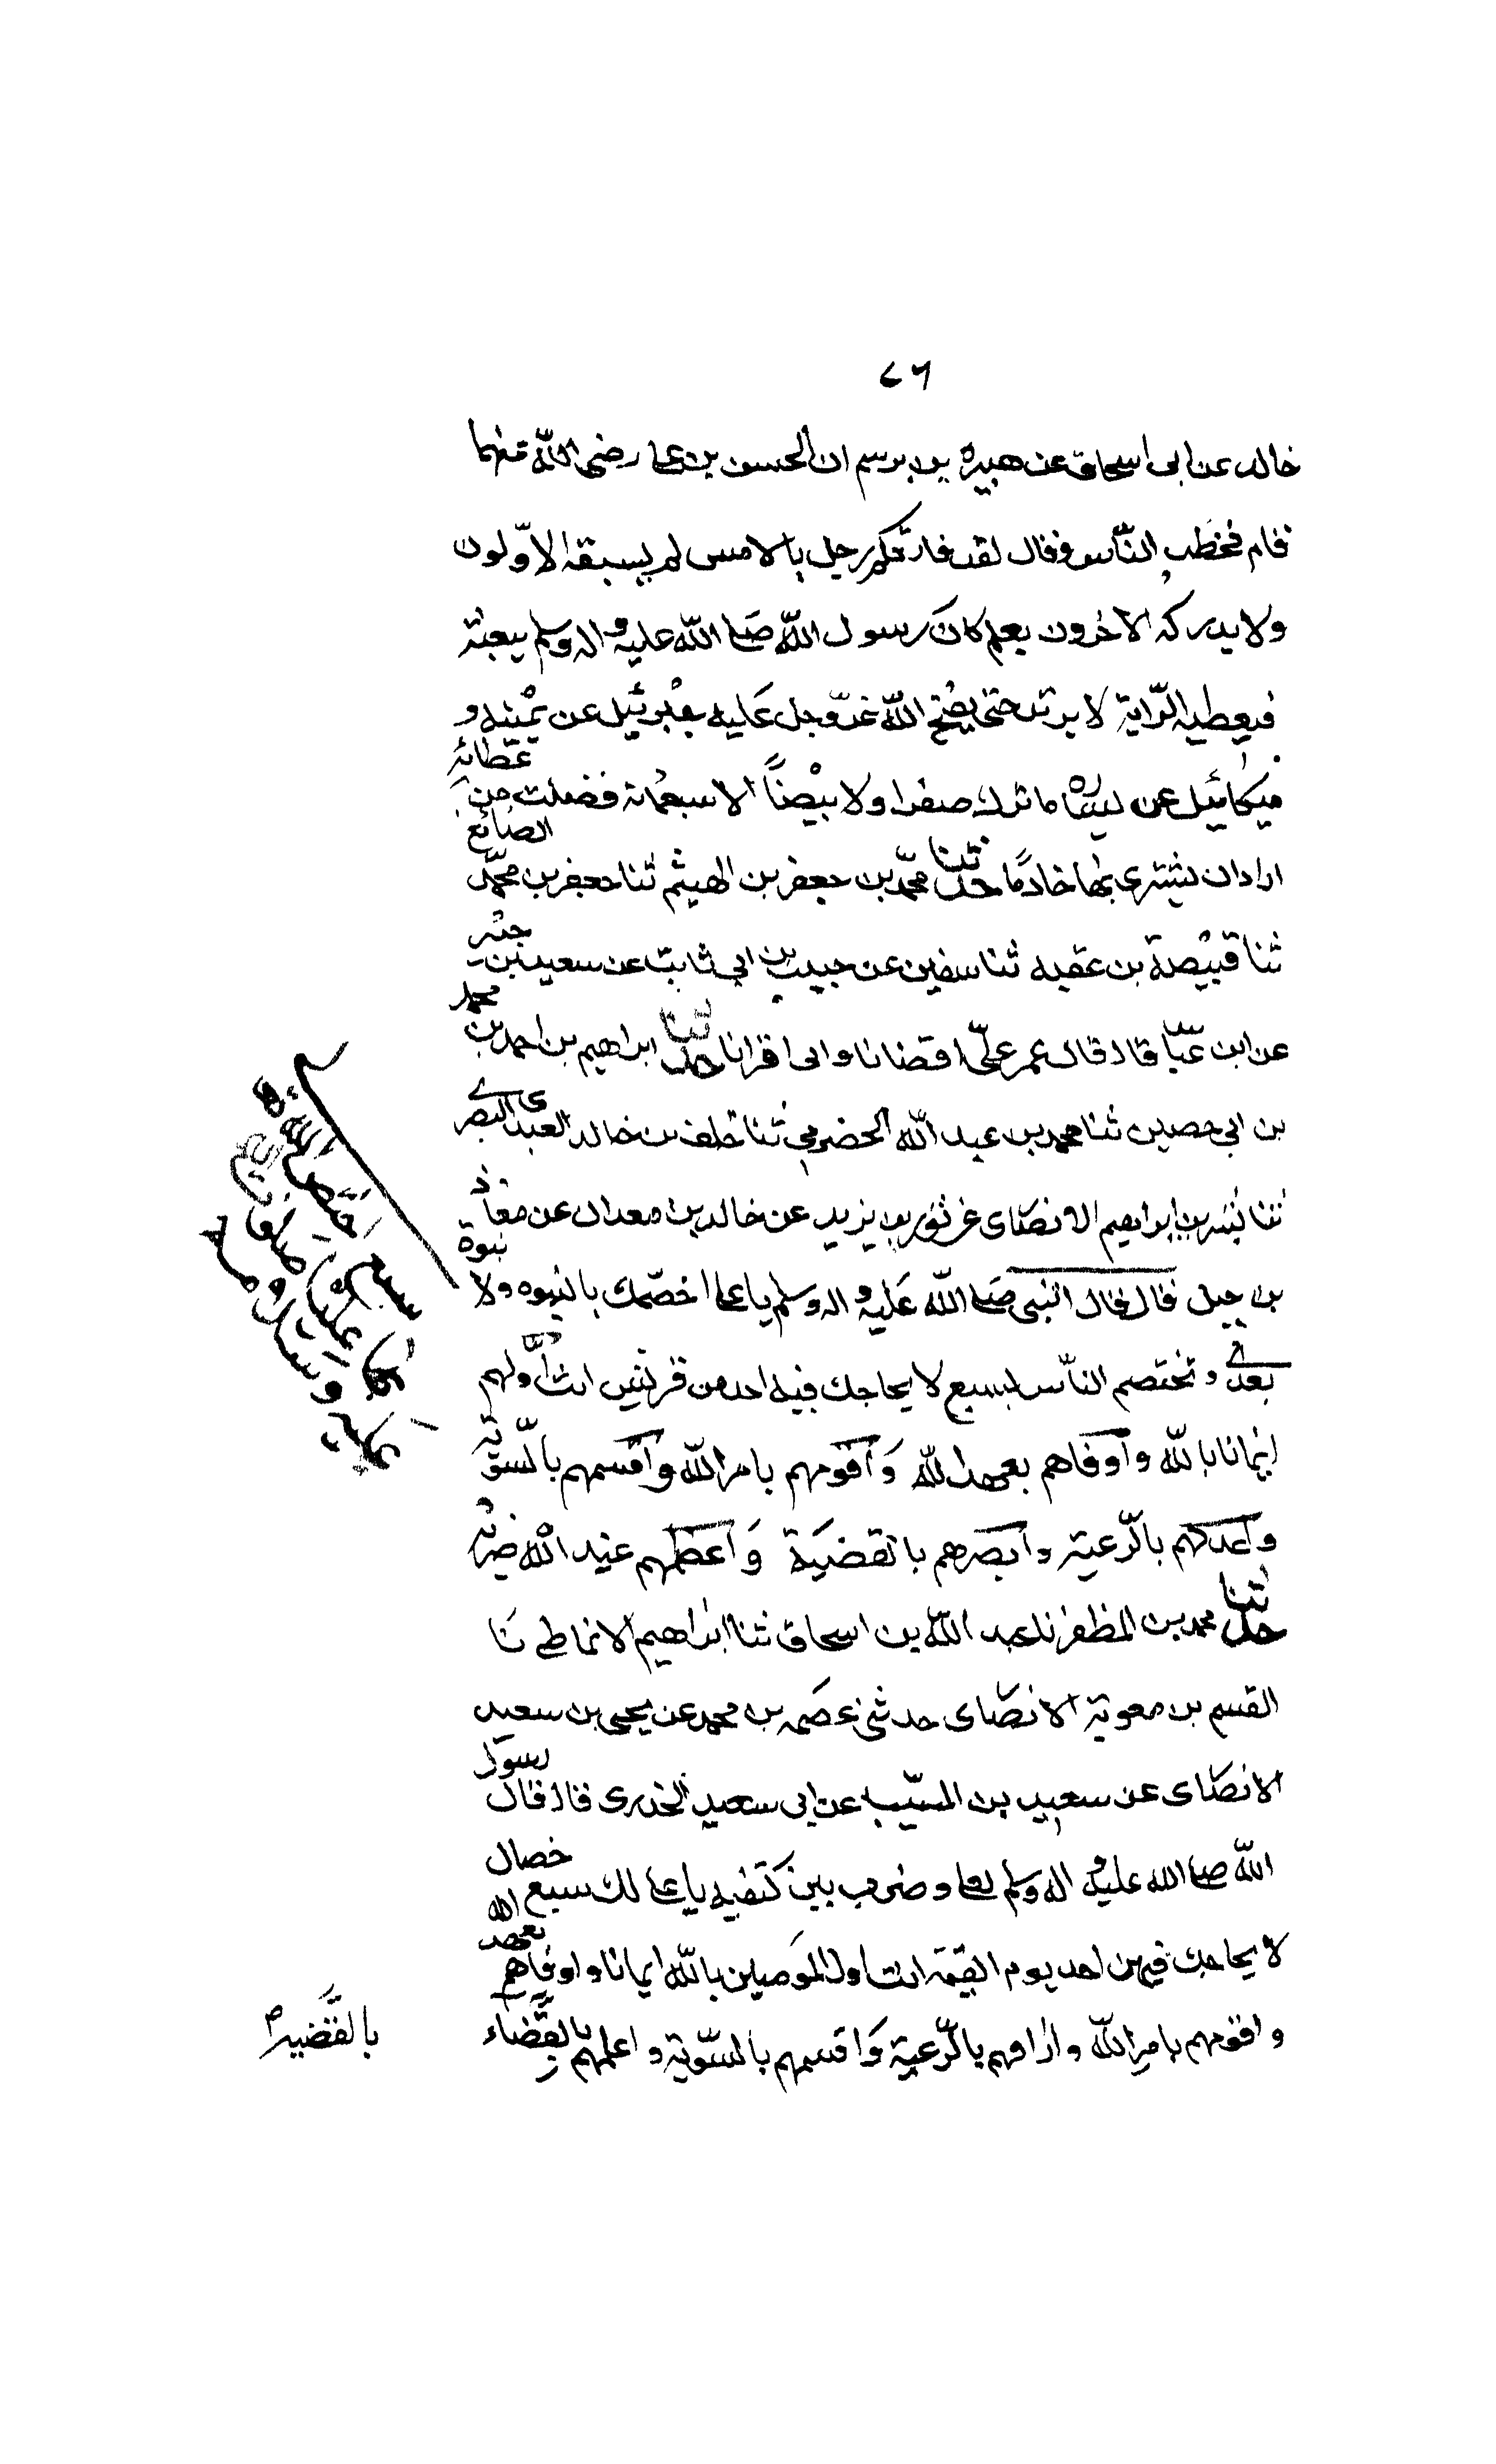 ٧٦
خالد عن ابى اسحاق عن هبيره بن برسم ان الحسن بن على رضى الله عنهما
فقام فخطب الناس وقال لقد فارقكم رجل بالامس لم يسبقه الاوّلون
ولا يدركه الاخرون بعلم كان رسول الله صلى الله عليه واله وسلم يبعثه
فيعطيه الرّاية لا يرتد حتى يفتح الله عزّ وجل عليه جبرئيل عن يمينه و
ميكائيل عن يساره ما ترك صفرا ولا بيضاً الا سبعمائة فضلت من عطائه
اراد ان يشترى بها خادمًا حدثنا محمّد بن جعفر بن الهيثم ثنا جعفر بن محمّد الصائغ
ثنا قبيصة بن عقبه ثنا سفين عن حبيب بن ابي ثابت عن سعيد بن جبير
عن ابن عبّا قال قال عمر علىّ اقضانا وابى اقرانا حدثنا ابراهيم بن احمد بن محمد
بن ابي حصين ثنا محمد بن عبد الله الحضرمي ثنا خلف بن خالد العبدى البصرے
ثنا بشر بن ابراهيم الانصاى عن ثور بن يزيد عن خالد بن معدان عن معاذ
بن جبل قال قال النبى صلى الله عليه واله وسلم يا على اخصمك بالنبوه ولا نبوة
بعدے وتختصم الناس بسبع لا يحاجك فيه احد من قريش انت اوّلهم
ايمانا بالله وأوفاهم بعهد الله وَأقومهم بامر الله وأقسمهم بالسّويّة
وأعدلهم بالرّعيّة وأبصرهم بالقضيَة وَأعظمهم عند الله مزية
حدثنا محمد بن المظفر ثنا عبد الله بن اسحاق ثنا ابراهيم الانماطي ثنا
القسم بن معوية الانصاى حدثنى عصمه بن محمد عن يحيى بن سعيد
الانصاى عن سعيد بن المسيّب عن ابى سعيد الخدرى قال قال رسول
الله صلى الله عليه واله وسلم لعلى وضرب بين كتفيه يا على لك سبع خصال
لا يحاجك فيهن احد يوم القيمة انت اول المومنين بالله ايمانا واوفاهم بعهد الله
واقومهم بامر الله وارافهم بالرّعية وَاقسمهم بالسّوية واعلمهم بالقضاء
سبع اختص الله
عليه وسلامه
بالقضيه